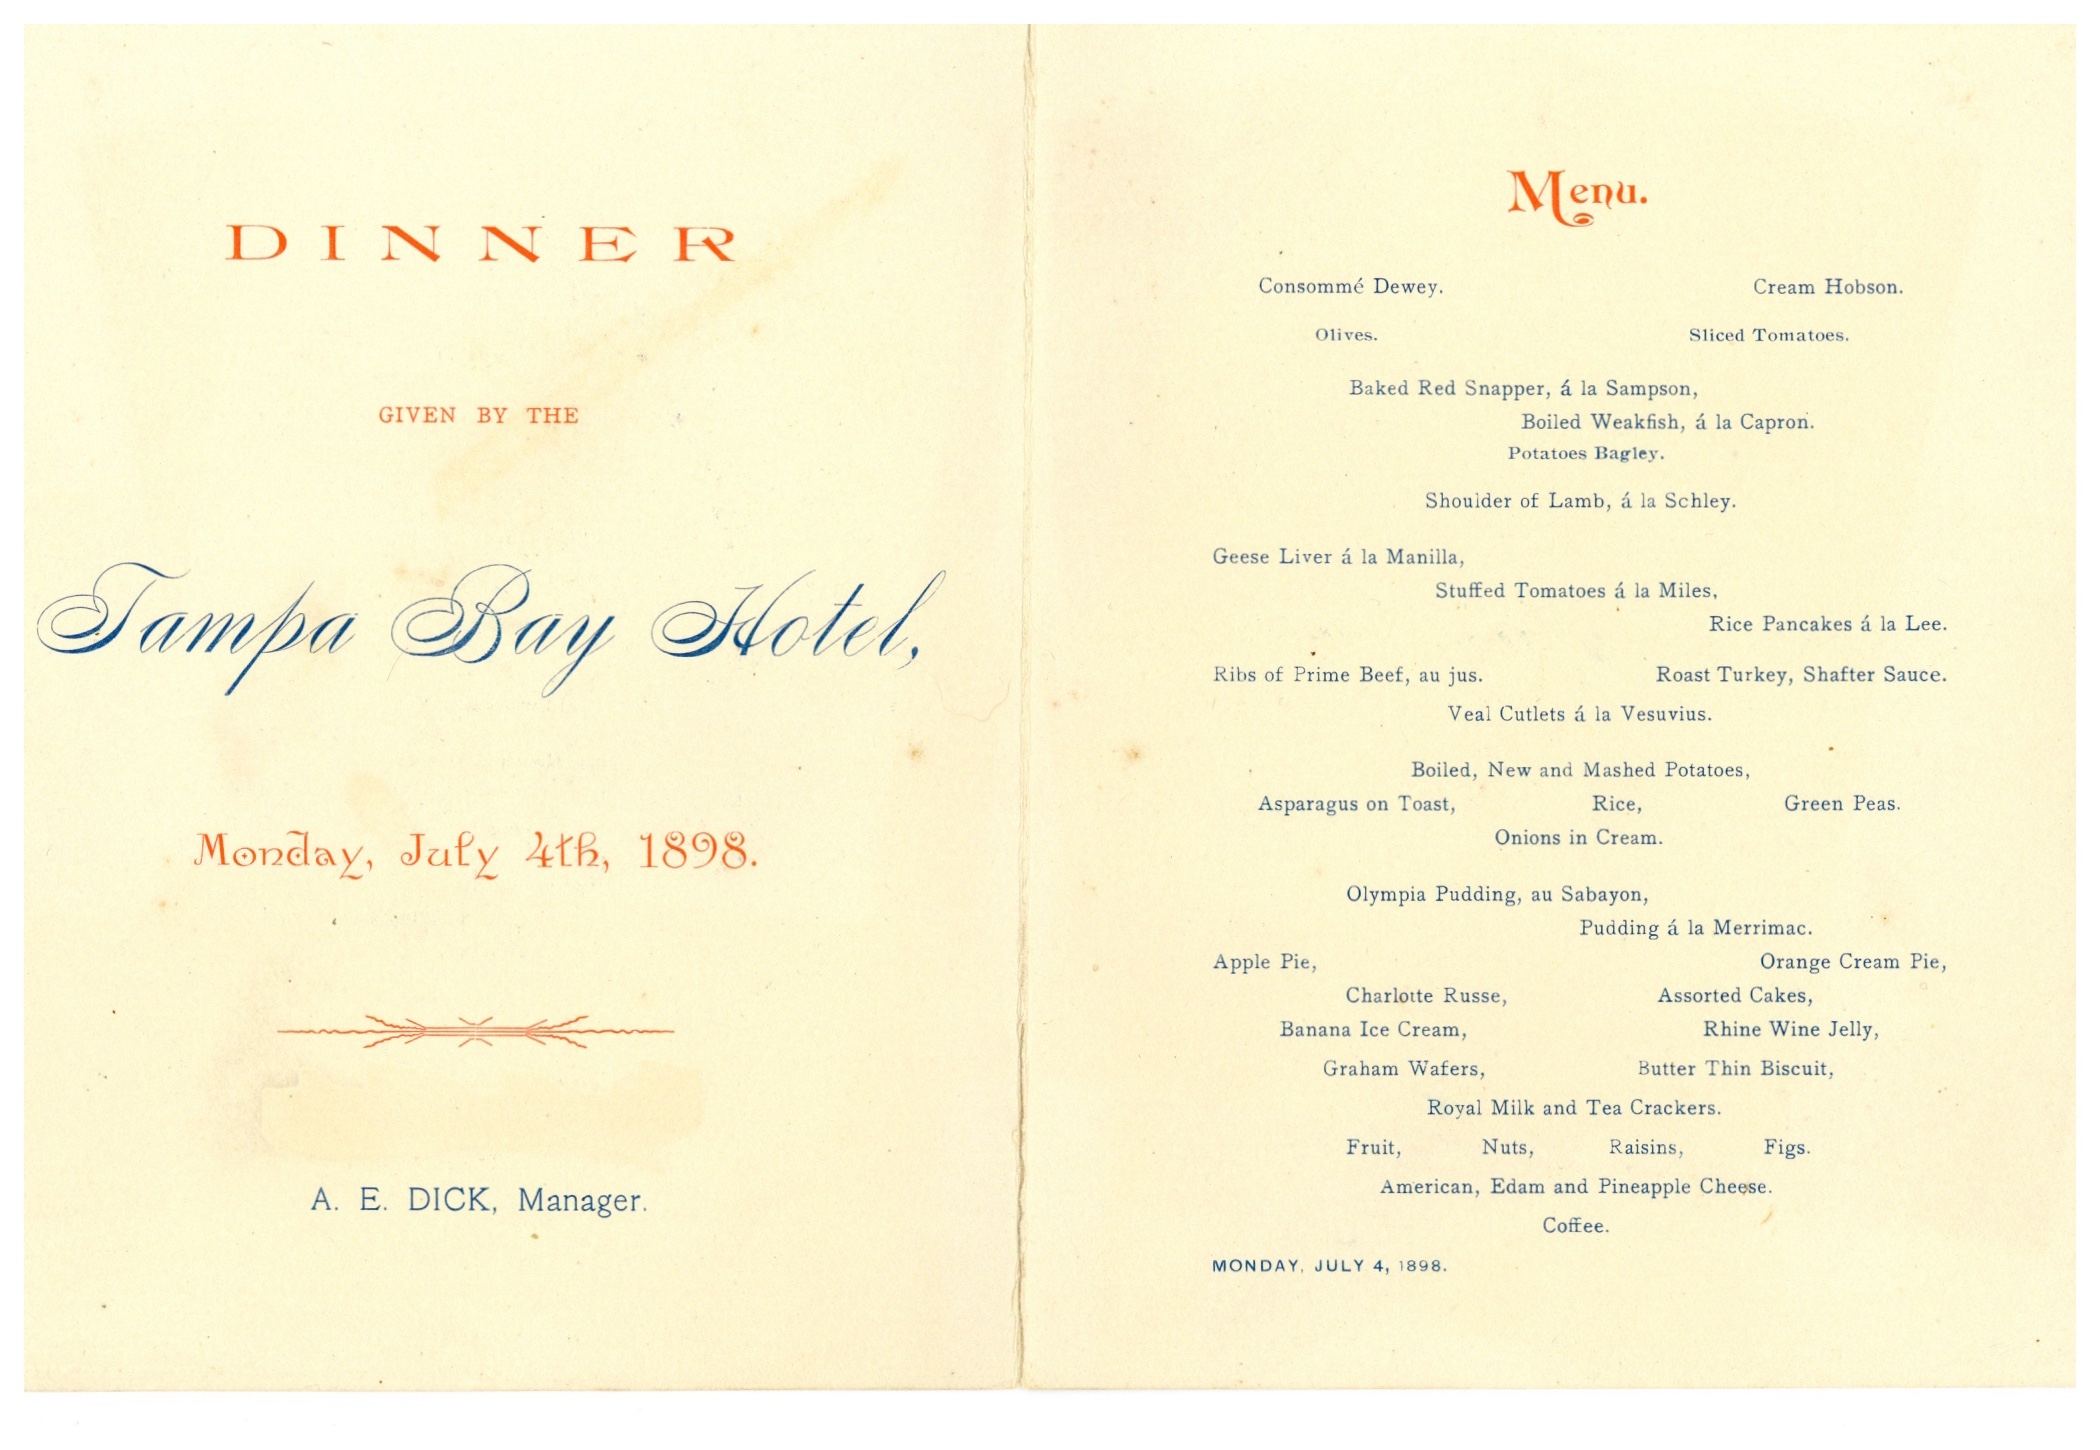 DINNER
GIVEN BY THE
Tampa Bay Hotel,
Monday, July 4th, 1898.
A. E. DICK, Manager.
Menu.
Consommé Dewey. Cream Hobson.
Olives. Sliced Tomatoes.
Baked Red Snapper, á la Sampson,
Boiled Weakfish, á la Capron.
Potatoes Bagley.
Shoulder of Lamb, á la Schley.
Geese Liver á la Manilla,
Stuffed Tomatoes á la Miles,
Rice Pancakes á la Lee.
Ribs of Prime Beef, au jus. Roast Turkey, Shafter Sauce.
Veal Cutlets á la Vesuvius.
Boiled, New and Mashed Potatoes,
Asparagus on Toast, Rice, Green Peas.
Onions in Cream.
Olympia Pudding, au Sabayon,
Pudding á la Merrimac.
Apple Pie, Orange Cream Pie,
Charlotte Russe, Assorted Cakes,
Banana Ice Cream, Rhine Wine Jelly,
Graham Wafers, Butter Thin Biscuit,
Royal Milk and Tea Crackers.
Fruit, Nuts, Raisins, Figs.
American, Edam and Pineapple Cheese.
Coffee.
MONDAY, JULY 4, 1898.